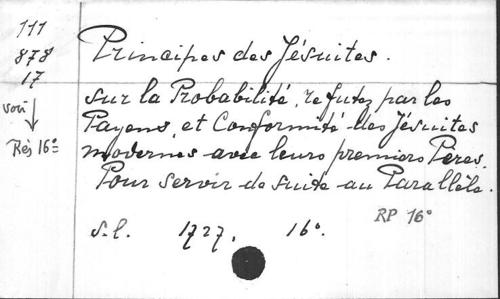 111
878
17
voir
Rés 16º
Principes des Jésuites.
sur la Probabilité, refutez par les
Payens, et Conformité des Jésuites
modernes avec leurs premiers Peres.
Pour servir de suite au Parallèle.
s.l. 1727. 16º.
RP 16º